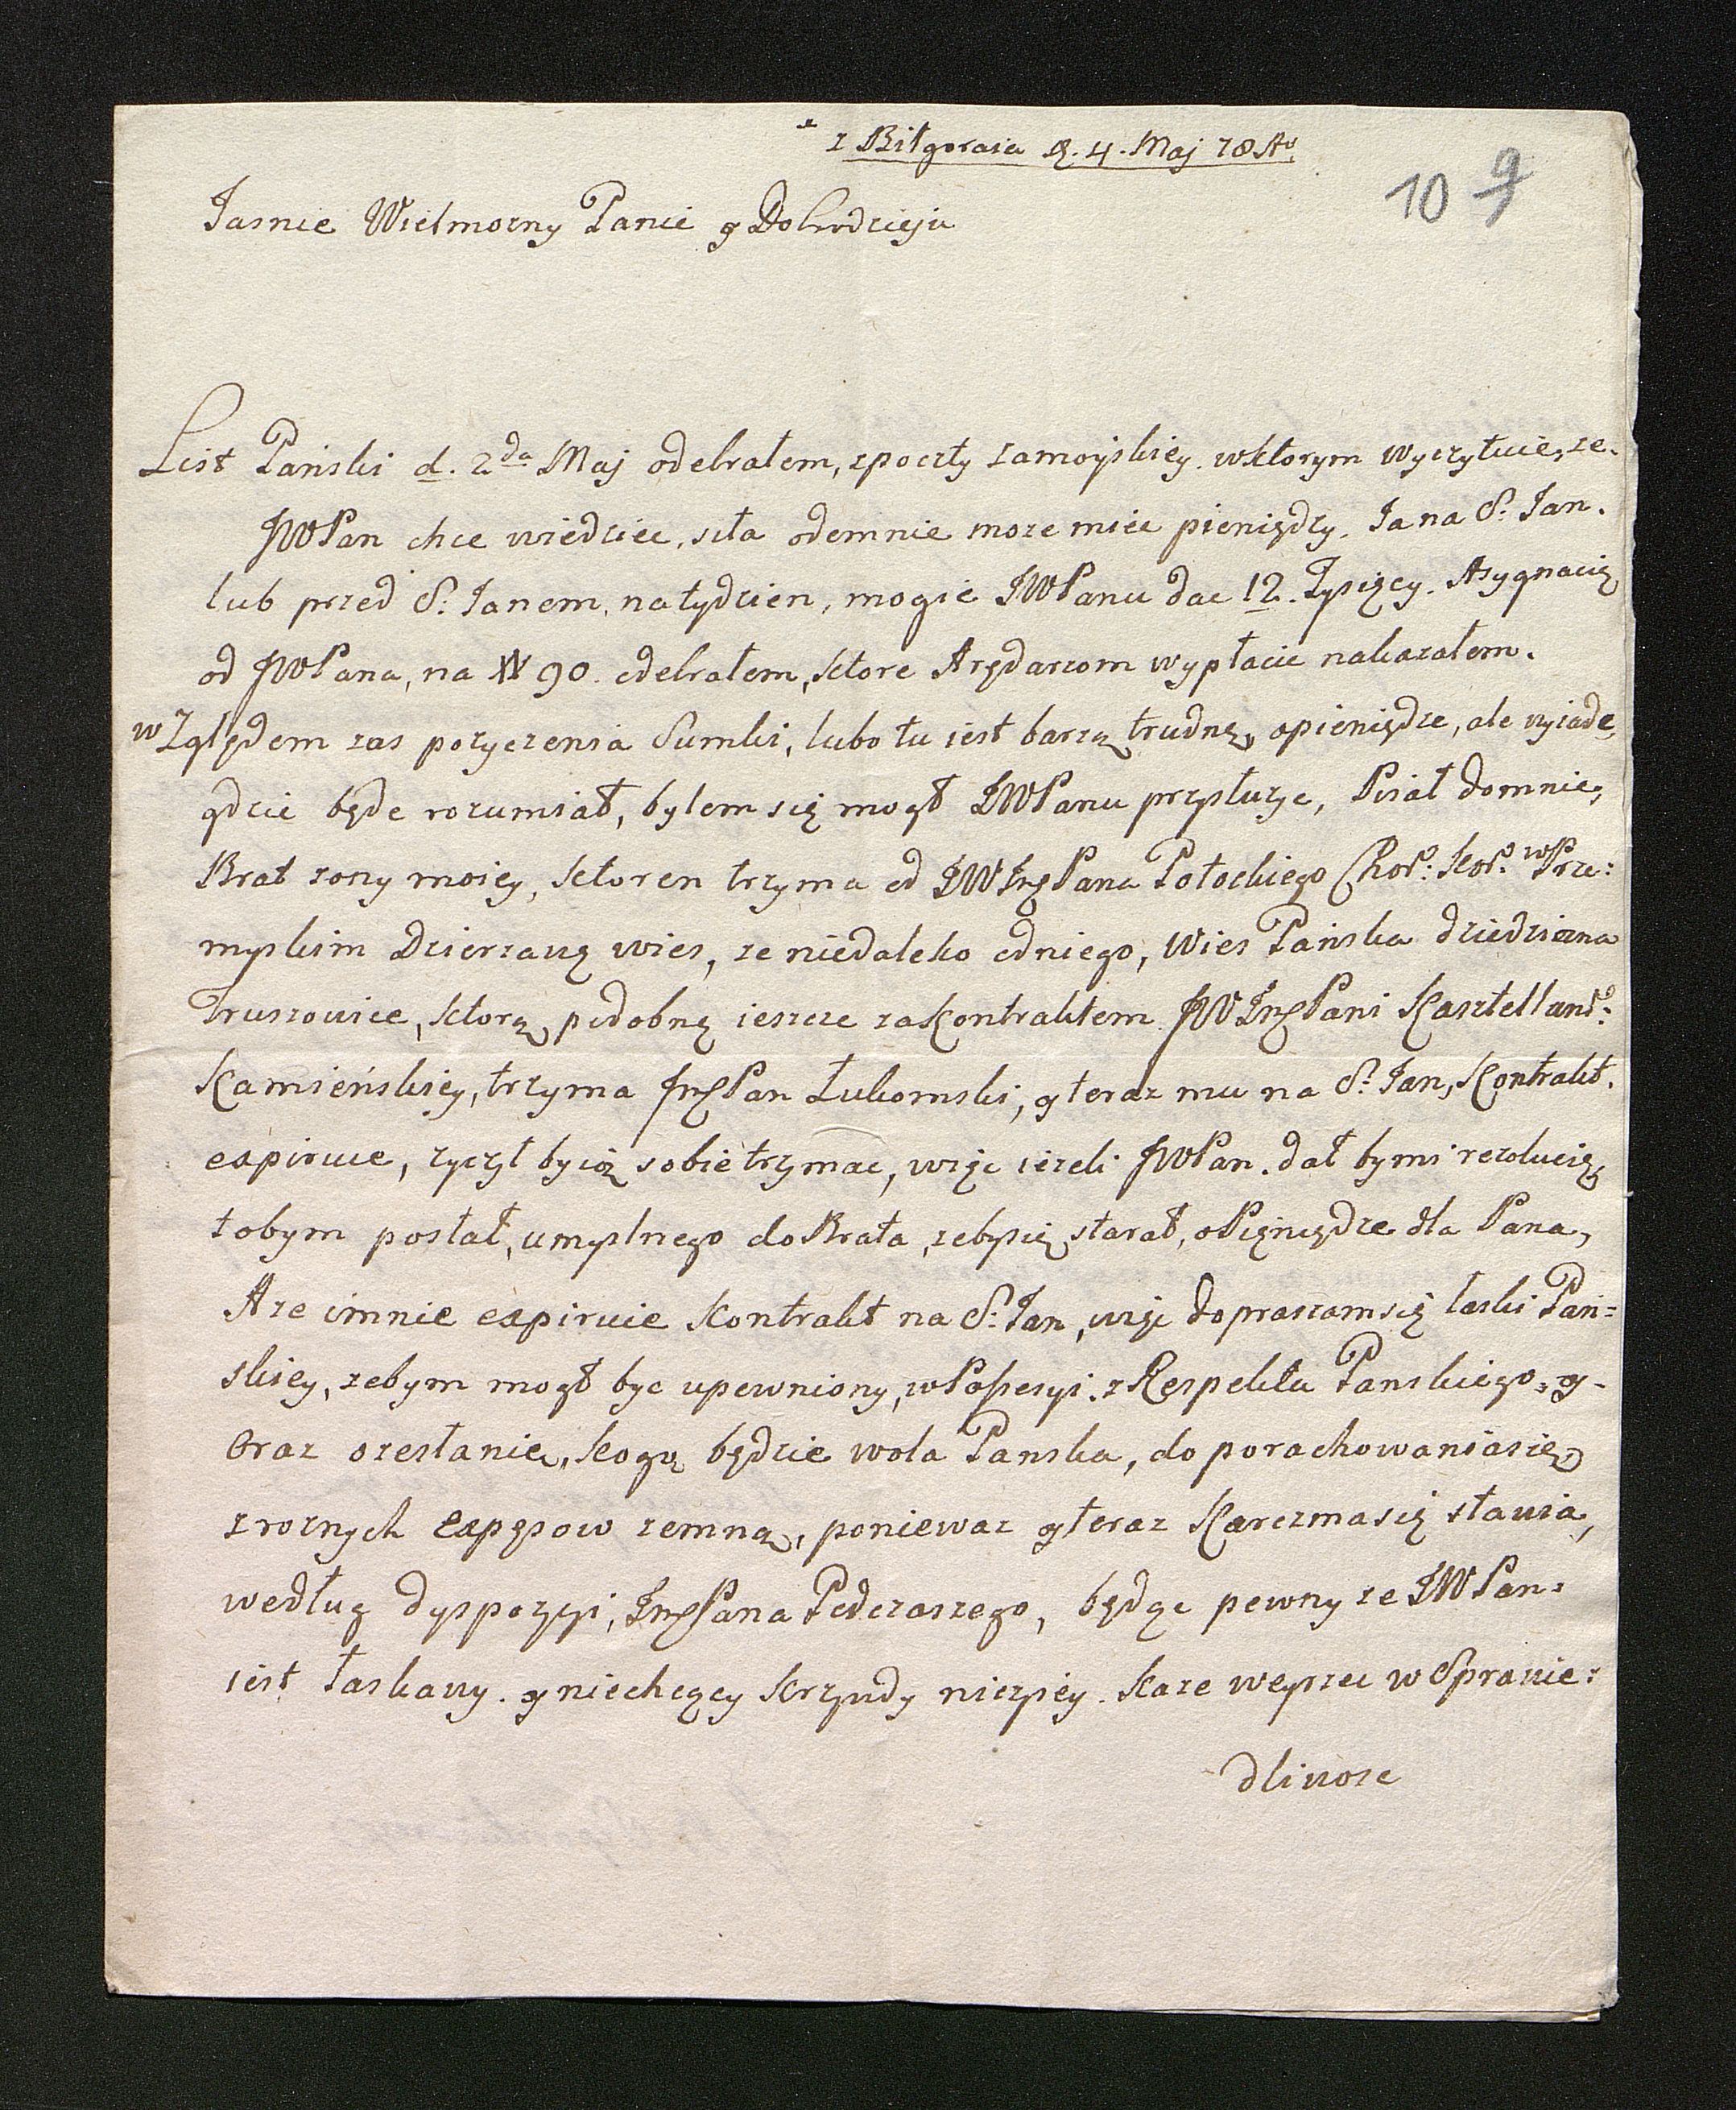 z Biłgoraia d. 4. Maj 78 Ao.
10 9
Jasnie Wielmozny Panie y Dobrodzieju
List Pański d. 2da Maj odebrałem, zpoczty zamoyskiey. wktorym wyczytuię, ze.
JWPan chce wiedziec, siła odemnie moze miec pieniędzy. Ia na S. Ian.
lub przed S. Ianem, natydzien, mogie JWPanu dac 12. Tysięcy. Asygnacię
od JWPana, na 90. odebrałem, ktore Arędarzom wypłacic nakazałem.
wZględem zas pozyczenia Sumki, lubo tu iest barzą trudną, opieniędze, ale wyiade,
gdzie będe rozumiał, bylem się mogł JWPanu przysłuzyc, Pisał domnie,
Brat zony moiey, ktoren trzyma od JWJmPana Potockiego Chor: Kor: wPrze:
myskim Dzierzawą wies, ze niedaleko odniego, Wies Pańska dziedziczna
Truszowice, ktorą, podobną ieszcze zakontraktem JWJmPani Kasztellans:
Kamieńskiey, trzyma JmPan Łukomski, y teraz mu na S. Ian, Kontrakt.
expiruie, zyczył by ią sobie trzymac, więc iezeli JWPan. dał bymi rezolucią,
tobym posłał, umyslnego do Brata, zebysię starał, oPięniędze dla Pana,
A ze imnie expiruie Kontrakt na S. Ian, więc dopraszamsię łaski Pań=
skiey, zebym mogł byc upewniony, wPossesyi. z Respektu Panskiego, y-
Oraz ozesłanie, kogo będzie wola Panska, do porachowaniasię,
zroznych expęsow zemną, poniewaz y teraz Karczmasię stawia,
według dyspozycyi, JmPana Podczaszego, będąc pewny ze JWPan=
iest łaskawy. y niechcący krzywdy niczyiey. Kaze weyrzec w Sprawie=
dliwosc